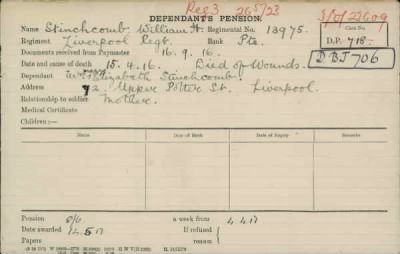 Reg 3 265/23
DEPENDANT'S PENSION.
3/D/22609
Name Stinchcomb. William H. Regimental No. 13975.
Case No.
Regiment Liverpool Regt. Rank Pte.
D.P. 718
DBJ 706
Documents received from Paymaster 16.9.16.
Date and cause of death 15.4.16. Died of Wounds.
Dependant Elizabeth Stinchcomb.
Address 72. Upper Potter St. Liverpool.
Relationship to soldier Mother.
Medical Certificate
Children:—
Name Date of Birth. Date of Expiry. Remarks.
Pension 5/6 a week from 4.4.17
Date awarded 14.5.17 If refused
Papers reason